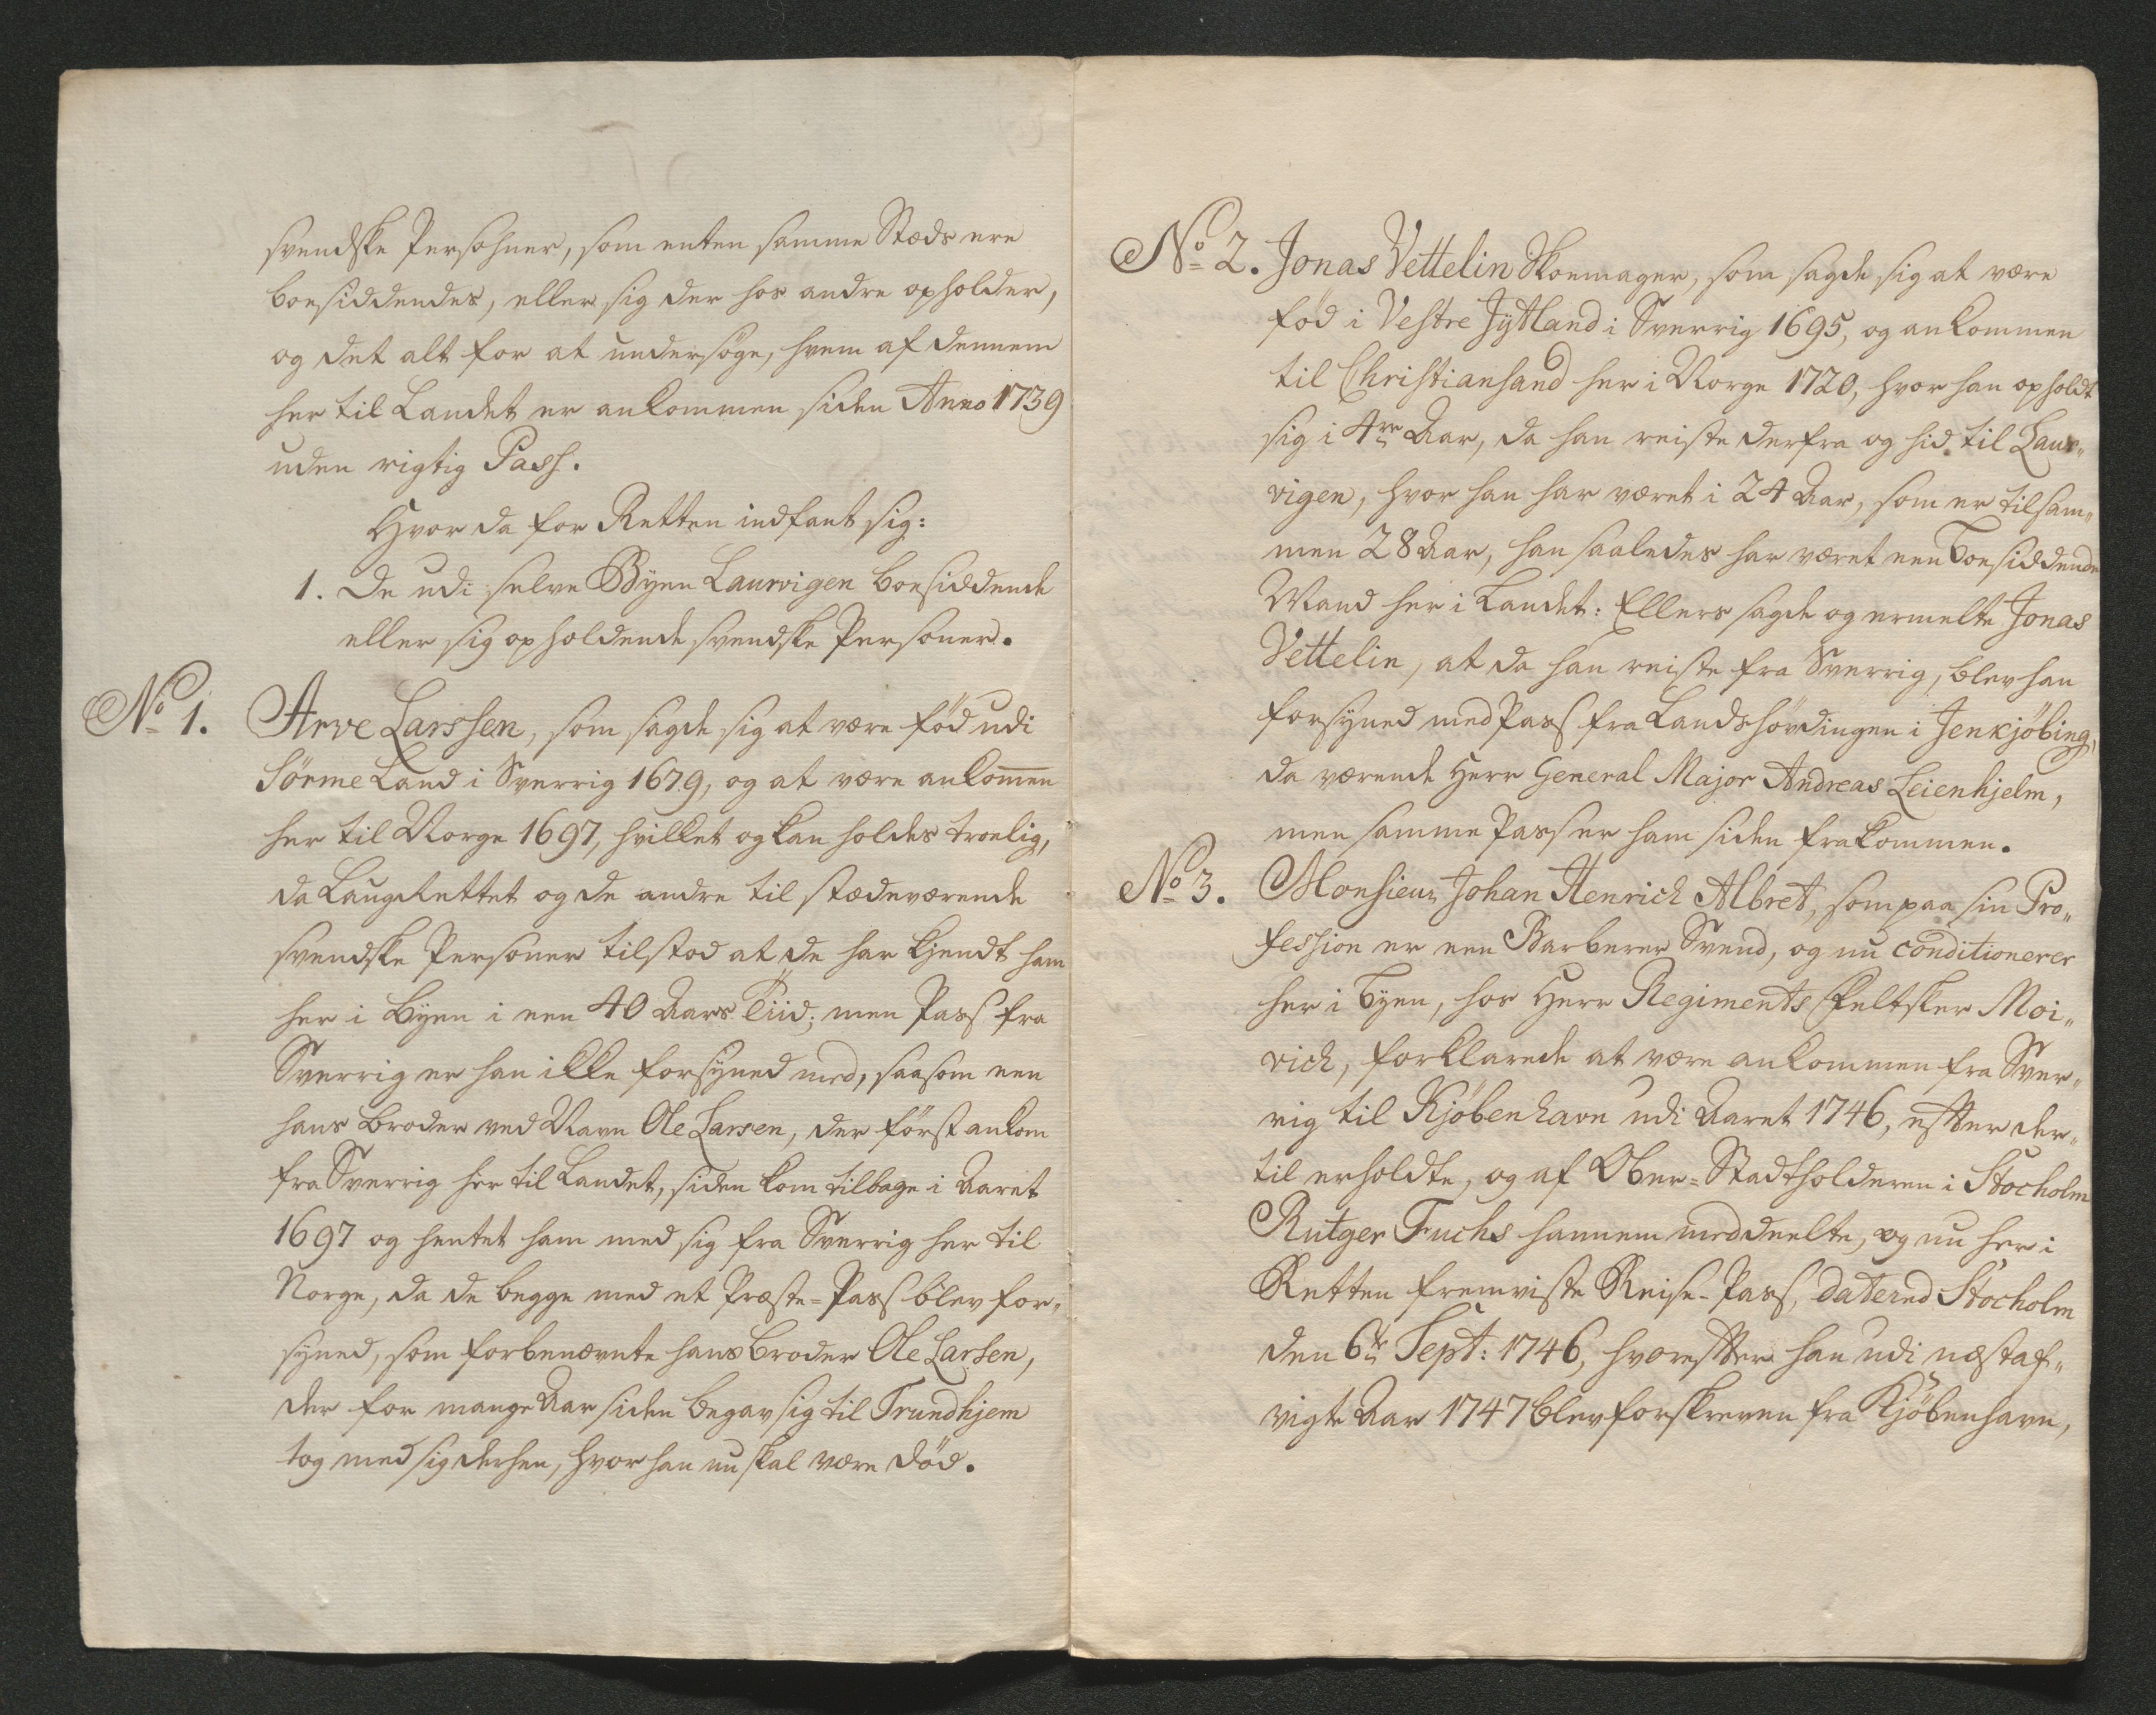 svendske Persohner, som enten samme Stæds ere
boesiddendes, eller sig der hos andre opholder,
og det alt for at undersøge, hvem af dennem
her til Landet er ankommen siden Anno 1739
uden rigtig Pass.
Hvor da for Retten indfant sig:
1. De udi selve Byen Laurvigen boesiddende
eller sig opholdende svendske Personer.
No 1. Arve Larssen, som sagde sig at være fød udi
Sørmeland i Sverrig 1679, og at være ankommen
her til Norge 1697, hvilket og kan holdes troelig,
da Laugrettet og de andre til stædeværende
svendske Personer tilstod at de har kjendt ham
her i Byen i een 40 Aars Tiid; men Pass fra
Sverrig er han ikke forsyned med, saasom een
hans Broder ved Navn Ole Larsen, der først ankom
fra Sverrig her til Landet, siden kom tilbage i Aaret
1697 og hentet ham med sig fra Sverrig her til
Norge, da de begge med et Præste-Pass blev for„
syned, som forbenævnte hans Broder Ole Larsen,
der for mange Aar siden begav sig til Trundhjem
tog med sig derhen, hvor han nu skal være død.
No 2. Jonas Vettelin Skoemager, som sagde sig at være
fød i Vestre Jyttland i Sverrig 1695, og ankommen
til Christiansand her i Norge 1720, hvor han opholdt
sig i 4re Aar, da han reiste derfra og hid til Laur„
vigen, hvor han har været i 24 Aar, som er tilsam„
men 28 Aar, han saaledes har været een boesiddende
Mand her i Landet: Ellers sagde og ermelte Jonas
Vettelin, at da han reiste fra Sverrig, blev han
forsyned med Pass fra Landshøvdingen i Jenkjøbing,
da værende Herr General Major Andreas Leienhjelm,
men samme Pass er ham siden frakommen.
No 3. Monsieur Johan Henrich Albret, som paa sin Pro„
fession er een Barberer Svend, og nu conditionerer
her i Byen, hos Herr Regiments Feltsker Moi„
rich, forklarede at være ankommen fra Sver„
rig til Kjøbenhavn udi Aaret 1746, efter der„
til erholdte, og af Ober-Stadtholderen i Stocholm
Rutger Fuchs hannem meddeelte, og nu her i
Retten fremviste Reise-Pass, datered Stocholm
den 6te Sept: 1746, hvorefter han udi næstaf„
vigte Aar 1747 blev forskreven fra Kjøbenhavn,